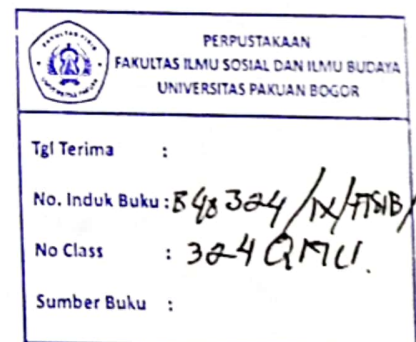 PERPUSTAKAAN
FAKULTAS ILMU SOSIAL DAN ILMU BUDAYA
UNIVERSITAS PAKUAN BOGOR
Tgl Terima :
No. Induk Buku :
No Class : 324
Sumber Buku :